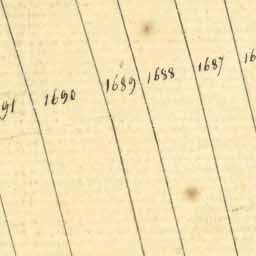 91
1690
1689
1688
1687
16